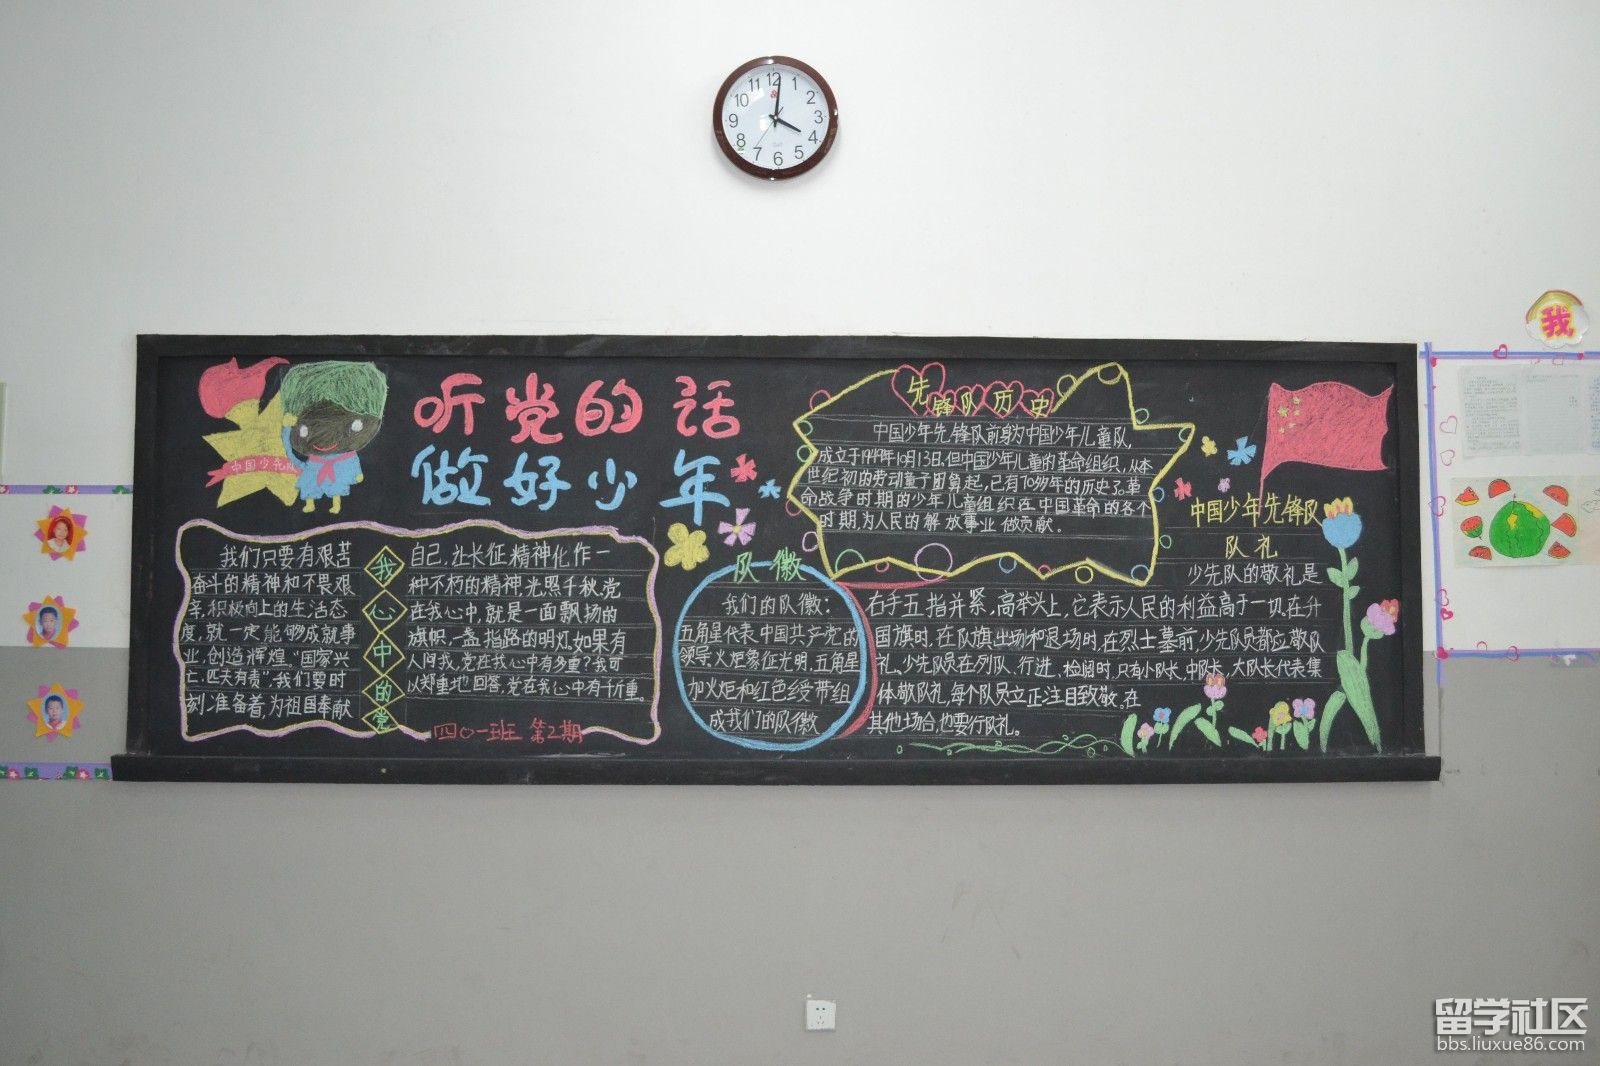 12
1
2
3
4
5
6
7
8
9
10
11
我
听党的话
做好少年
中国少先队
我心中的党
我们只要有艰苦
奋斗的精神和不畏艰
辛,积极向上的生活态
度,就一定能够成就事
业,创造辉煌。“国家兴
亡,匹夫有责”,我们要时
刻准备着,为祖国奉献
自己,让长征精神化作一
种不朽的精神,光照千秋。党
在我心中,就是一面飘扬的
旗帜,一盏指路的明灯。如果有
人问我,党在我心中有多重?我可
以郑重地回答,党在我心中有千斤重。
四〇一班 第2期
先锋队历史
中国少年先锋队前身为中国少年儿童队,
成立于1949年10月13日,但中国少年儿童的革命组织,从本
世纪初的劳动童子团算起,已有70多年的历史了。革
命战争时期的少年儿童组织在中国革命的各个
时期,为人民的解放事业做贡献。
队徽
我们的队徽:
五角星代表中国共产党的
领导,火炬象征光明,五角星
加火炬和红色绶带组
成我们的队徽
中国少年先锋队
队礼
少先队的敬礼是
右手五指并紧,高举头上,它表示人民的利益高于一切。在升
国旗时,在队旗出场和退场时,在烈士墓前,少先队员都应敬队
礼。少先队员在列队、行进、检阅时,只有小队长,中队长,大队长代表集
体敬队礼,每个队员立正注目致敬。在
其他场合,也要行队礼。
留学社区
bbs.liuxue86.com